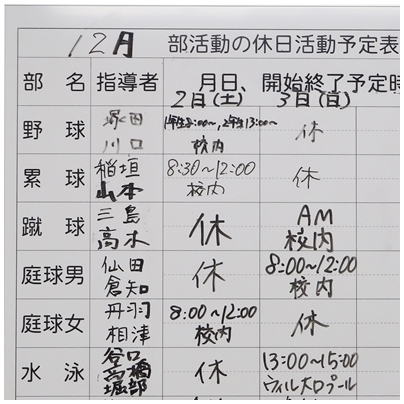 12月 部活動の休日活動予定表
部 名 指導者 月日、開始終了予定時
2日(土) 3日(日)
野 球 塚田 1年生8:00~, 2年生13:00~ 休
川口 校内
累 球 稲垣 8:30~12:00 休
山本 校内
蹴 球 三島 休 AM
高木 校内
庭球男 仙田 休 8:00~12:00
倉知 校内
庭球女 丹羽 8:00~12:00 休
相津 校内
水 泳 谷口 休 13:00~15:00
高橋 ウィル大口プール
堀部